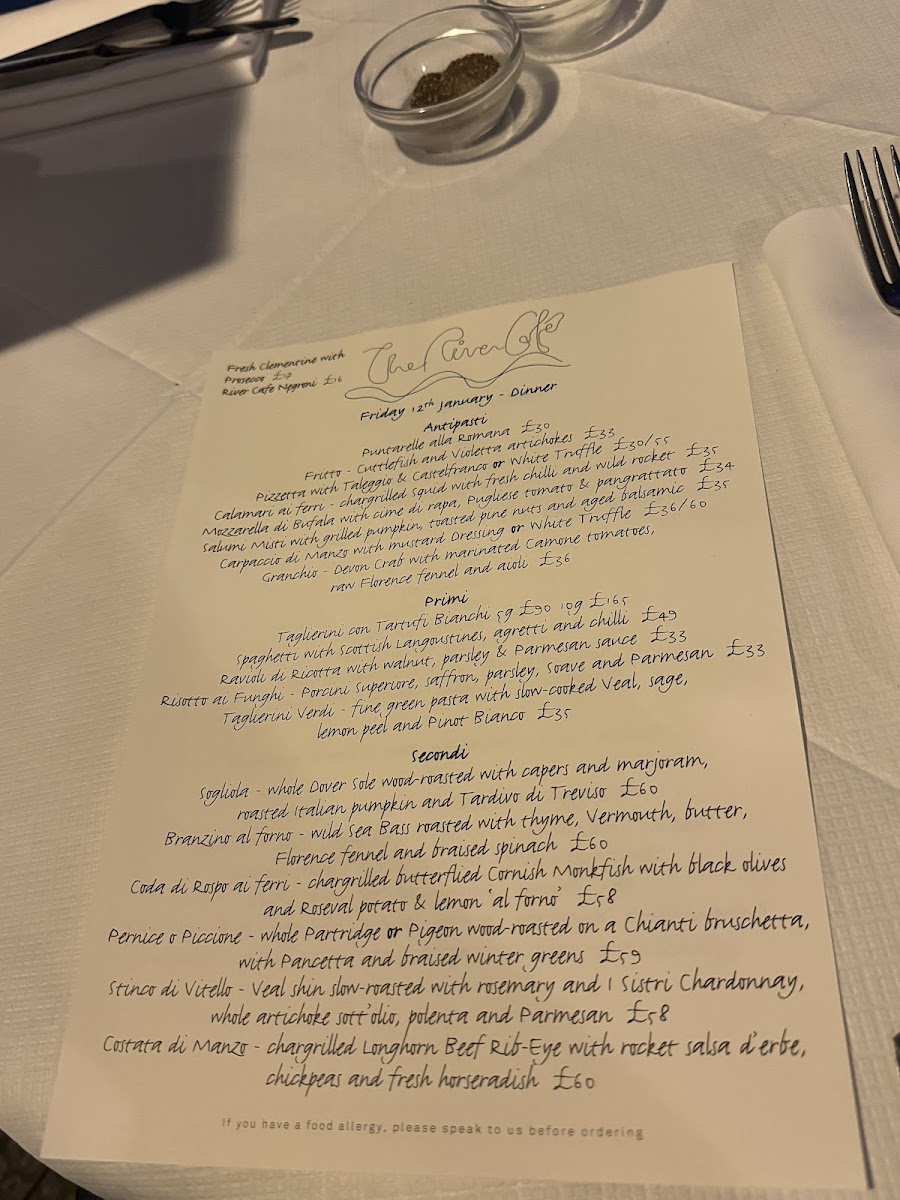 Fresh Clementine with
Prosecco £17
River Cafe Negroni £16
The River Café
Friday 12th January - Dinner
Antipasti
Puntarelle alla Romana £30
Fritto - Cuttlefish and Violetta artichokes £33
Pizzetta with Taleggio & Castelfranco or White Truffle £30/55
Calamari ai ferri - chargrilled Squid with fresh chilli and wild rocket £35
Mozzarella di Bufala with cime di rapa, Pugliese tomato & pangrattato £34
Salumi Misti with grilled pumpkin, toasted pine nuts and aged balsamic £35
Carpaccio di Manzo with mustard Dressing or White Truffle £36/60
Granchio - Devon Crab with marinated Camone tomatoes,
raw Florence fennel and aioli £36
Primi
Taglierini con Tartufi Bianchi 5g £90 10g £165
Spaghetti with Scottish Langoustines, agretti and chilli £49
Ravioli di Ricotta with walnut, parsley & Parmesan sauce £33
Risotto ai Funghi - Porcini Superiore, saffron, parsley, Soave and Parmesan £33
Taglierini Verdi - fine green pasta with slow-cooked Veal, sage,
lemon peel and Pinot Bianco £35
Secondi
Sogliola - whole Dover Sole wood-roasted with capers and marjoram,
roasted Italian pumpkin and Tardivo di Treviso £60
Branzino al forno - wild Sea Bass roasted with thyme, Vermouth, butter,
Florence fennel and braised spinach £60
Coda di Rospo ai ferri - chargrilled butterflied Cornish Monkfish with black olives
and Roseval potato & lemon 'al forno' £58
Pernice o Piccione - whole Partridge or Pigeon wood-roasted on a Chianti bruschetta,
with Pancetta and braised winter greens £59
Stinco di Vitello - Veal shin slow-roasted with rosemary and I Sistri Chardonnay,
whole artichoke sott'olio, polenta and Parmesan £58
Costata di Manzo - chargrilled Longhorn Beef Rib-Eye with rocket salsa d'erbe,
chickpeas and fresh horseradish £60
If you have a food allergy, please speak to us before ordering